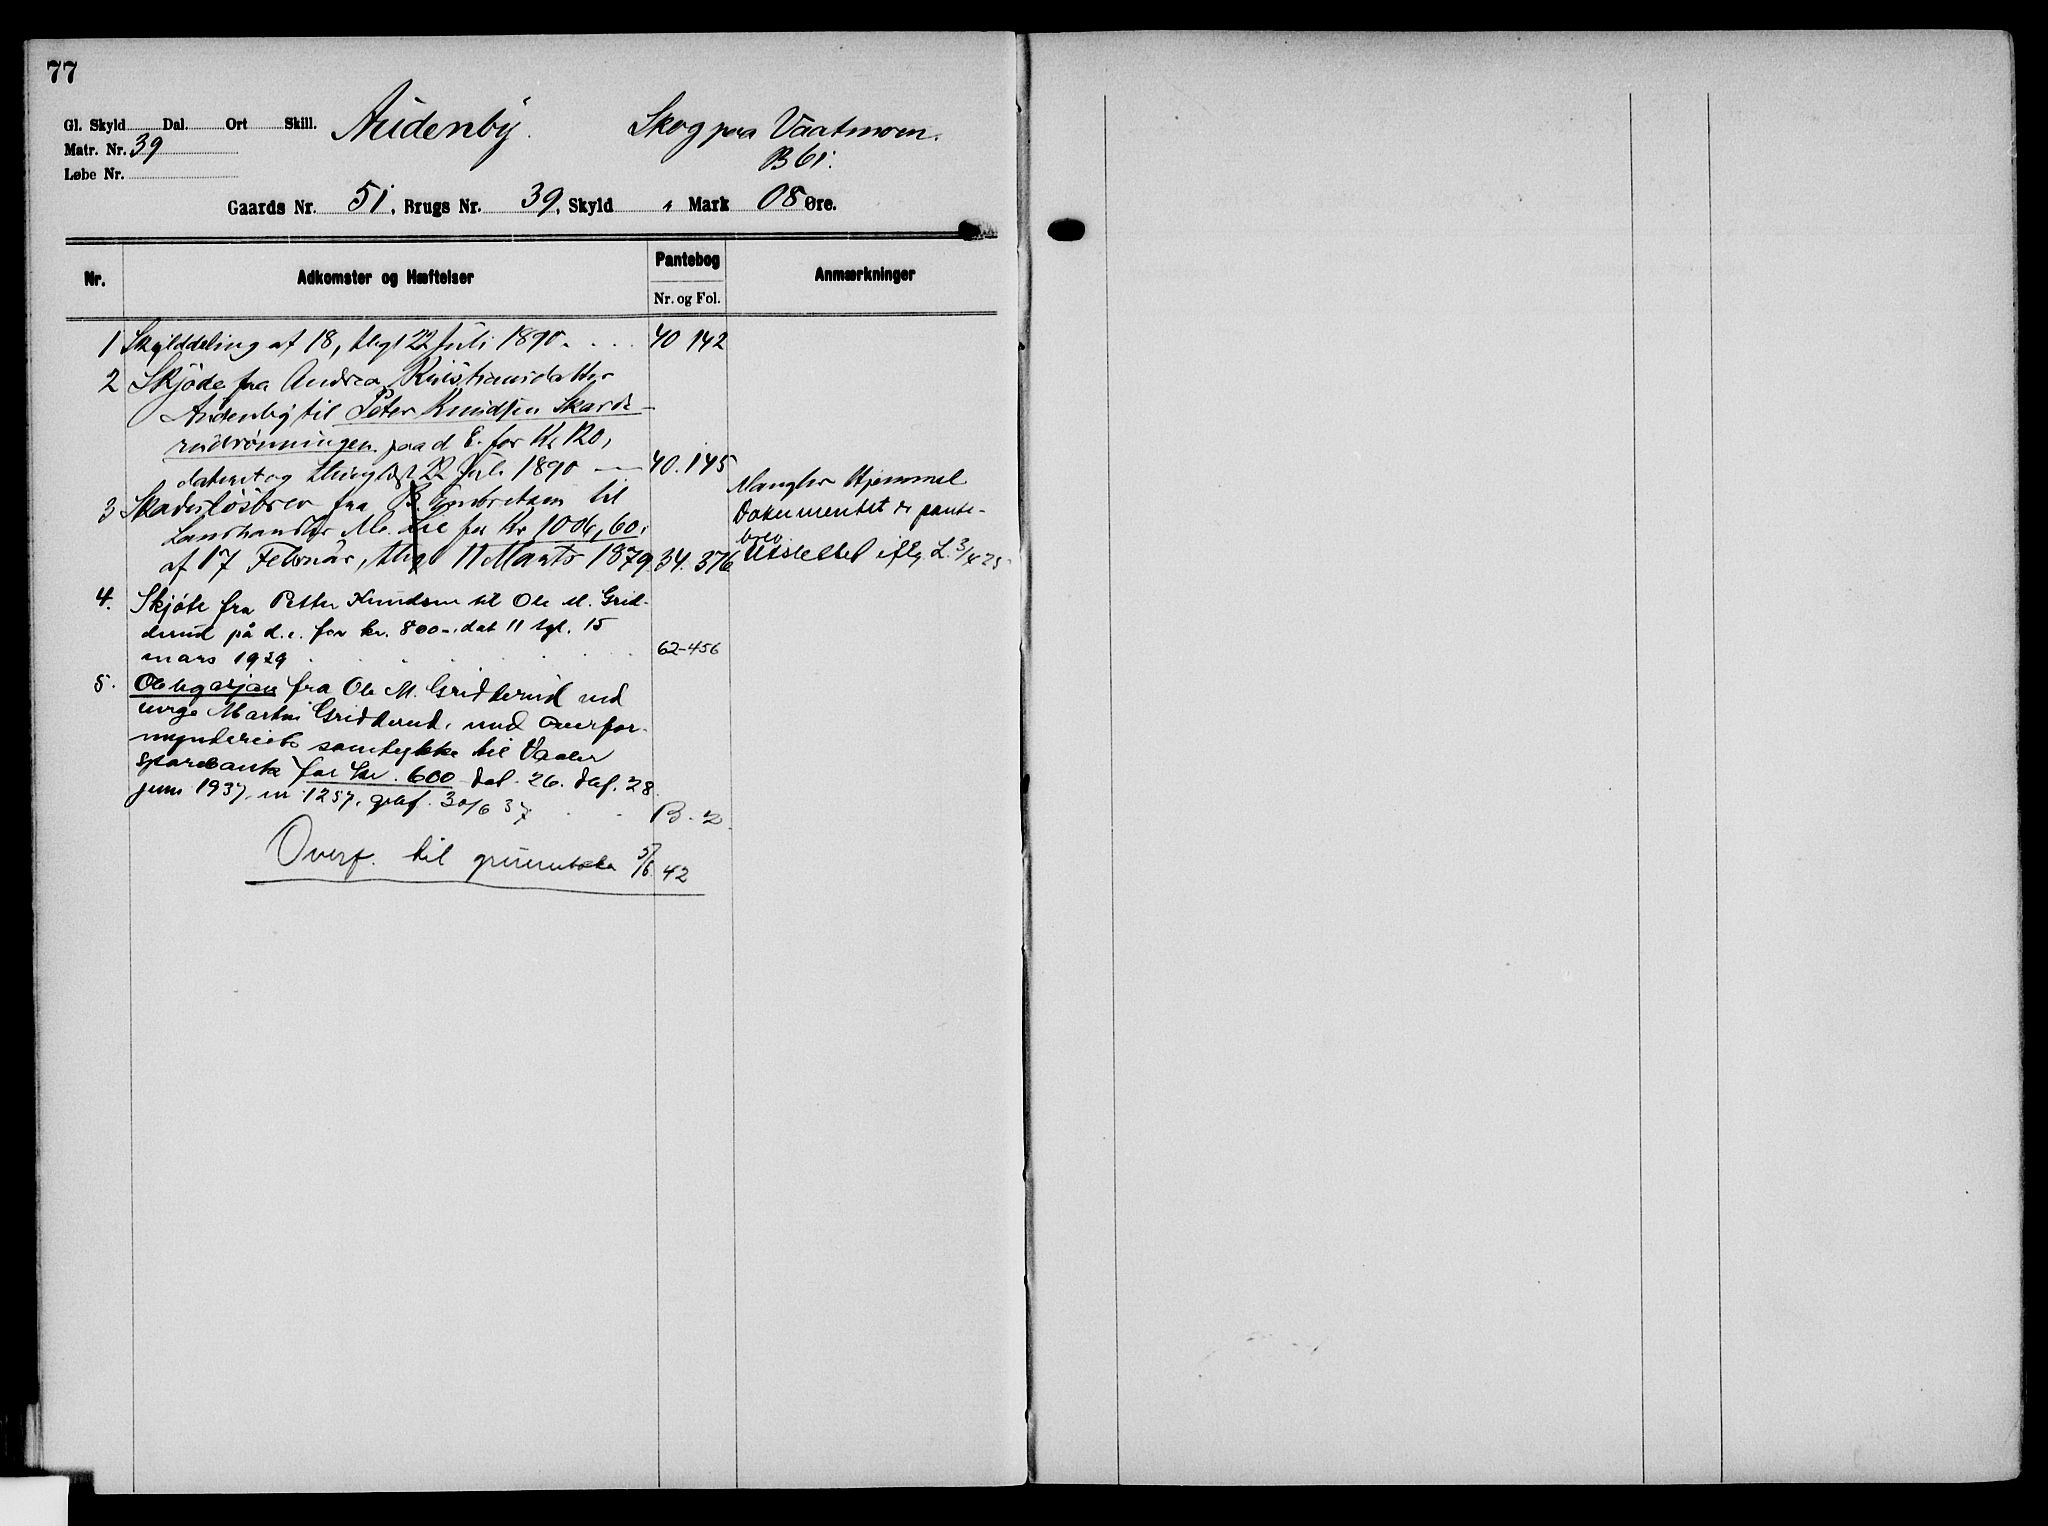 77
Gl. Skyld Dal. Ort Skill. Audenby. Skog paa Vaatmoen.
Matr. Nr. 39 B 61.
Løbe Nr.
Gaards Nr. 51, Brugs Nr. 39, Skyld " Mark 08 Øre.
Nr. Adkomster og Hæftelser Pantebog Anmærkninger
Nr. og Fol.
1 Skylddeling af 18, thgl 22 Juli 1890. 40 142
2 Skjøde fra Andrea Kristiansdatter
Audenby til Peter Knudsen Skards-
rudrønningen paa d. E. for Kr 120,
dateret og thinglæst 22 Juli 1890 40. 145
3 Skadesløsbrev fra B. Embretsen til
Landhandler M. Lie for Kr 1006,60.
af 17 Februar, thgl 11 Marts 1879. 34. 376
Mangler Hjemmel
Dokumentet er pante-
brev
Udslettet iflg L. 3/4 25
4. Skjøte fra Petter Knudsen til Ole M. Grid-
derud på d.e. for kr. 800-. dat 11 tgl. 15
mars 1929 62-456
5. Obligasjon fra Ole M. Gridderud med
verge Martin Gridderud, med overfor-
mynderiets samtykke til Vaaler
sparebank for kr. 600 - dat. 26. dbf. 28.
juni 1937, nr 1257, 30/6 37 B. 2.
Overf. til grunnboka 5/6 42